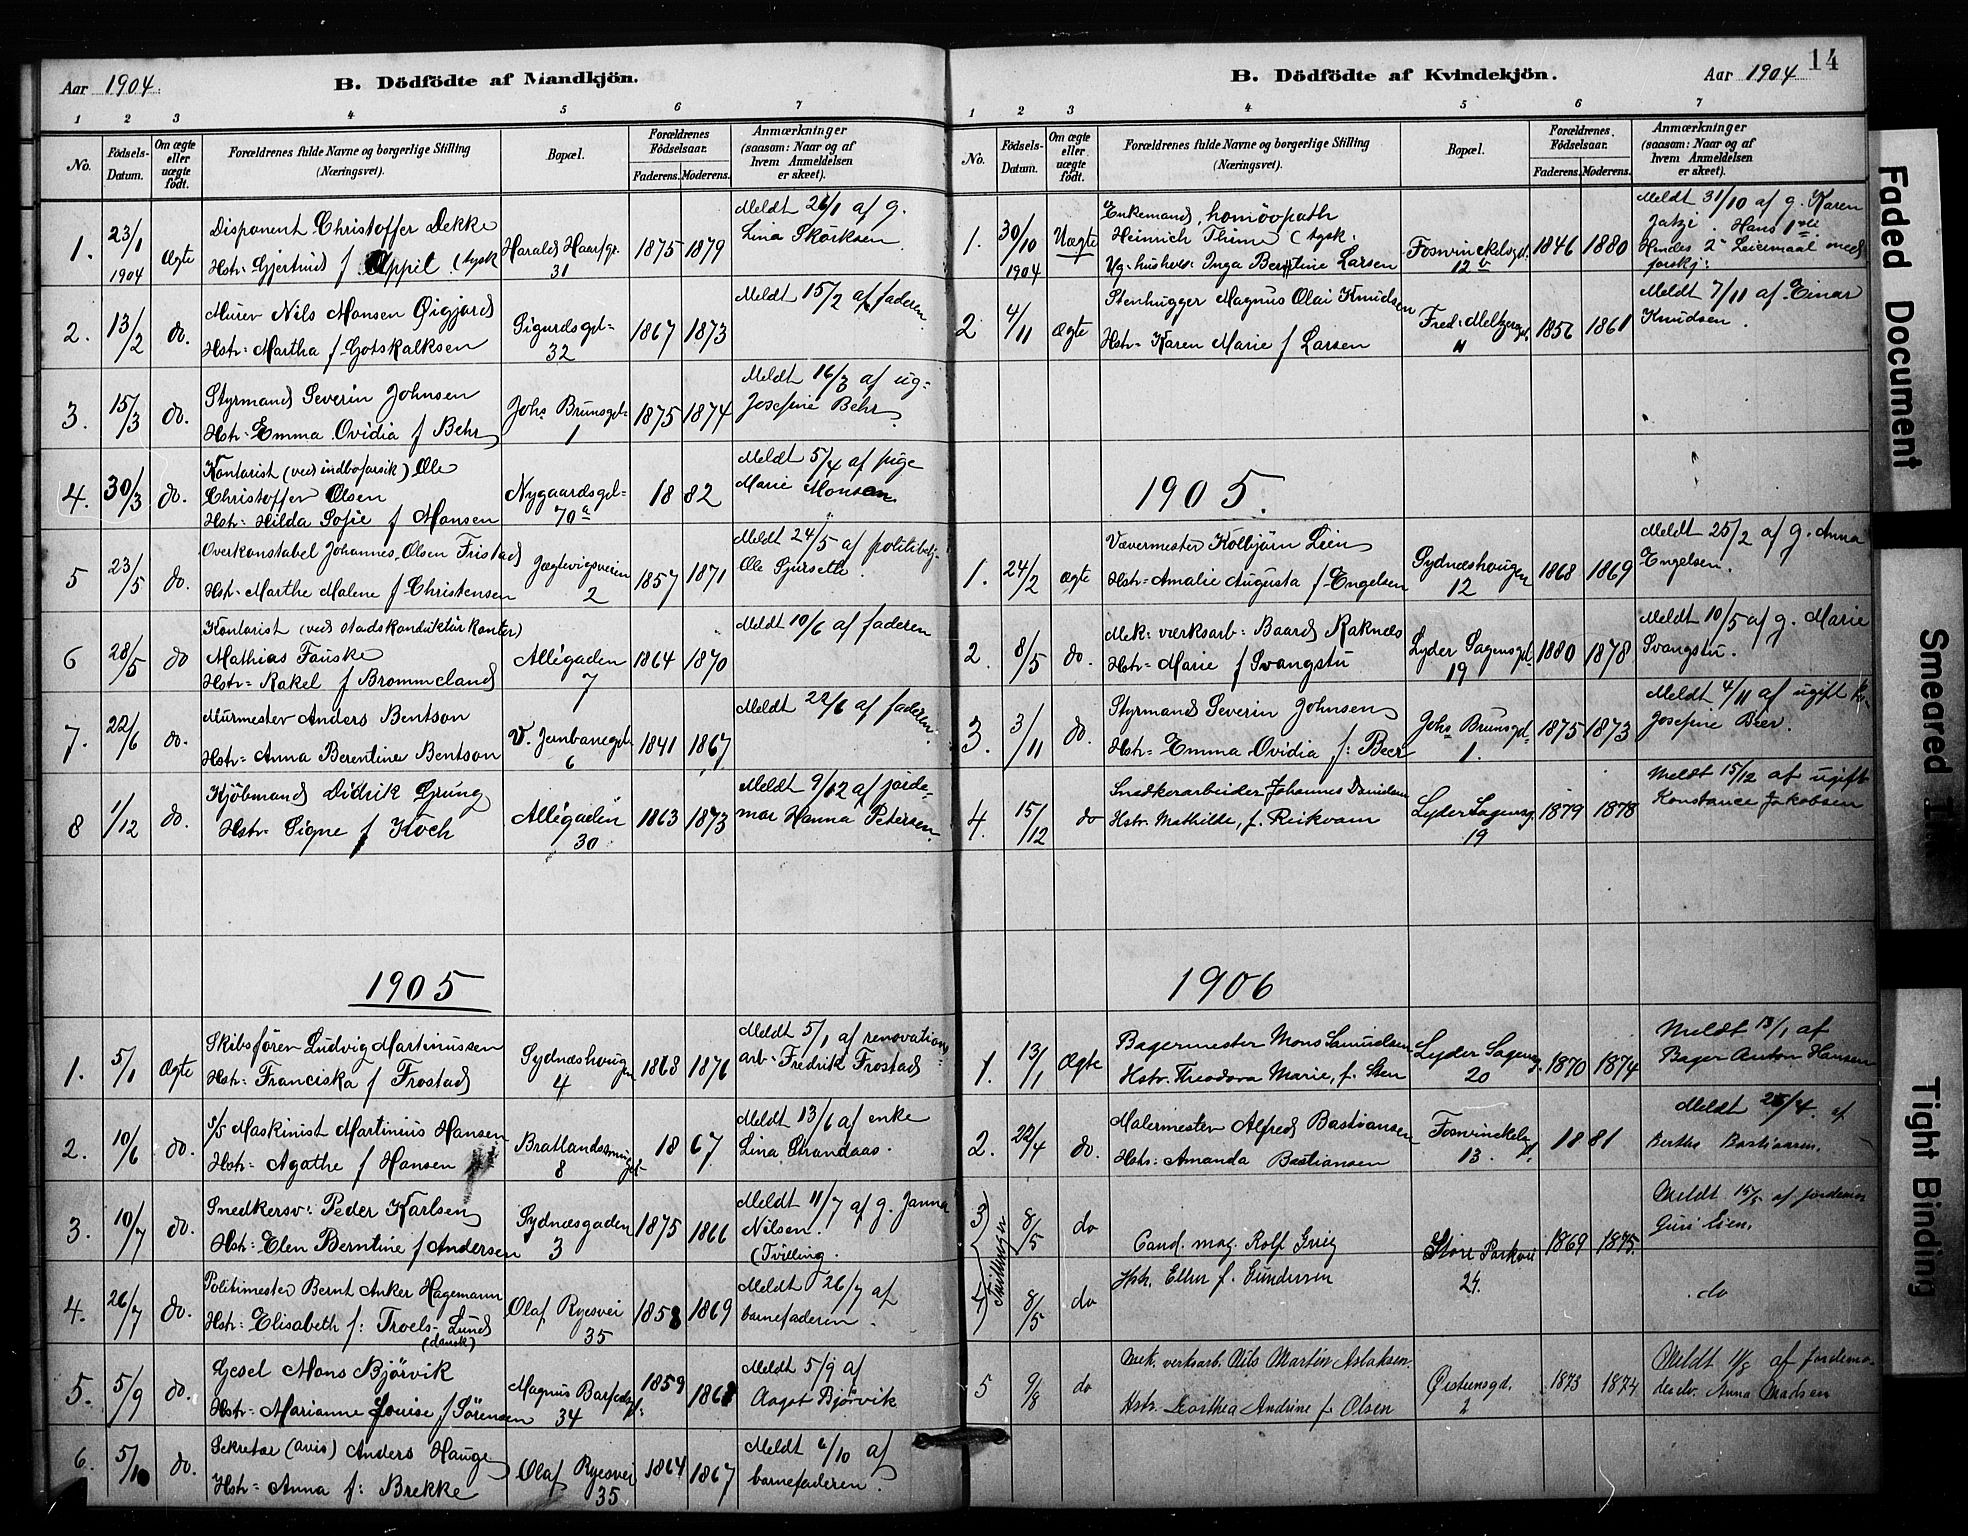 Aar 1904.
B. Dödfödte af Mandkjön.
1 2 3 4 5 6 7
No.
Födsels-Datum.
Om ægte eller uægte födt.
Forældrenes fulde Navne og borgerlige Stilling
(Næringsvei).
Bopæl.
Forældrenes Födselsaar.
Faderens. Moderens.
Anmærkninger
(saasom: Naar og af
hvem Anmeldelsen
er skeet).
1. 23/1 1904 Ægte
Disponent Christoffer Dekke
Hstr: Gjertrud f. Appit (tysk
Harald Haarfgr. 31
1875 1879
Meldt 26/1 af g.
Lina
2. 13/2 do.
Murer Nils Monsen Øigjord
Hstr: Martha f Gotskalksen
Sigurdsgd= 32
1867 1873
Meldt 15/2 af faderen.
3. 15/3 do.
Styrmand Severin Johnsen
Hstr: Emma Ovidia f Behr
Johs Brunsgd= 1
1875 1874
Meldt 16/3 af ug=
Josefine Behr
4. 30/3 do.
Kontorist (ved indboforsik) Ole
Christoffer Olsen
Hstr: Hilda Sofie f Monsen
Nygaardsgd= 70a
1882
Meldt 5/4 af pige
Marie Monsen
5 23/5 do.
Overkonstabel Johannes Olsen Fristad
Hstr: Marthe Malene f Christensen
Jægtevigsveien 2
1857 1871
Meldt 24/5 af politibetj.
Ole
6 28/5 do
Kontorist (ved stadskonduktörkontor)
Mathias Fauske
Hstr: Rakel f Brommeland
Allégaden 7
1864 1870
Meldt 10/6 af faderen
7. 22/6 do.
Murmester Anders Bentson
Hstr: Anna Berentine Bentson
V. Jernbanegd= 6
1841 1867
Meldt 22/6 af faderen.
8 1/12 do.
Kjöbmand Didrik Grung
Hstr: Signe f Koch
Allégaden 30
1863 1873
Meldt 9/12 af jorde-
mor Hanna Petersen.
1905
1. 5/1 Ægte
Skibsförer Ludvig Martinussen
Hstr: Franciska f Frostad
Sydnæshougen 4
1868 1876
Meldt 5/1 af renovations
arb: Fredrik Frostad
2. 10/6 do.
s/s Maskinist Martinius Hansen
Hstr: Agathe f Hansen
Bratlandssmuget 8
1867
Meldt 13/6 af enke
Lina Strandaas.
3. 10/7 do.
Snedkersv: Peder Karlsen
Hstr: Elen Berntine f Andersen
Sydnæsgaden 3
1875 1866
Meldt 11/7 af g. Janna
Nilsen.
(Tvilling.
4. 26/7 do.
Politimester Bernt Anker Hagemann
Hstr: Elisabeth f: Troels-Lund
(dansk)
Olaf Ryesvei 35
1858 1869
Meldt 26/7 af
barnefaderen.
5. 5/9 do.
Gesel Mons Bjørvik
Hstr: Marianne Louise f Sörensen
Magnus Barfodsgd: 34
1859 1868
Meldt 5/9 af
Aagot Bjørvik
6. 5/10 do.
Sekretær (avis) Anders Hauge
Hstr: Anna f: Brekke
Olaf Ryesvei 35
1864 1867
Meldt 6/10 af
barnefaderen.
B. Dödfödte af Kvindekjön.
Aar 1904
14
1 2 3 4 5 6 7
No.
Födsels-Datum.
Om ægte eller uægte födt.
Forældrenes fulde Navne og borgerlige Stilling
(Næringsvei).
Bopæl.
Forældrenes Födselsaar.
Faderens. Moderens.
Anmærkninger
(saasom: Naar og af
hvem Anmeldelsen
er skeet).
1. 30/10 1904 Uægte
Enkemand, homöopath
Heinrich Thime (tysk.
Ug. hushold: Inga Berntine Larsen
Foswinckelsgd. 12b
1846 1880
Meldt 31/10 af g. Karen
Hans 1ste
Hendes 2det Leiermaal med
forskj:
2 4/11 Ægte
Stenhugger Magnus Olai Knudsen
Hstr: Karen Marie f Larsen
Fred. Meltzersgd. 11
1856 1861
Meldt 7/11 af Einar
Knudsen.
1905.
1. 24/2 Ægte
Vævermester Kolbjörn Lien
Hstr: Amalie Augusta f Engelsen
Sydnæshougen 12
1868 1869
Meldt 25/2 af g. Anna
Engelsen.
2. 8/5 do.
Mek: værksarb: Baard Raknes
Hstr: Marie f Svangstu
Lyder Sagensgd. 19
1880 1878
Meldt 10/5 af g. Marie
Svangstu.
3. 3/11 do.
Styrmand Severin Johnsen
Hstr: Emma Ovidia f: Beer
Johs Brunsgd= 1.
1875 1873
Meldt 4/11 af ugift kv.
Josefine Beer.
4. 15/12 do
Snedkerarbeider Johannes Danielsen
Hstr. Mathilde, f. Reikvam
Lyder Sagensg. 19
1879 1878
Meldt 15/12 af ugift
Konstance Jakobsen
1906
1. 13/1 Ægte
Bagermester Mons Samuelsen
Hstr. Theodora Marie, f. Sten
Lyder Sagensg. 20
1870 1874
Meldt 13/1 af
Bager Anton Hansen
2. 22/4 do.
Malermester Alfred Bastiansen
Hstr: Amanda Bastiansen
Foswinckelsgd. 13.
1881
Meldt 25/4. af
Bertha Bastiansen.
3 8/5 do
Tvillinger
Cand. mag. Rolf Grieg
Hstr. Ellen f. Gundersen
Store Parkvei 24.
1869 1875.
Meldt 15/5 af jordemor
Guri Lien.
4 8/5 do
do
5 9/8 do
Mek. verksarb. Nils Martin Aslaksen.
Hstr. Dorthea Andrine f. Olsen
Øisteinsgd. 2
1873 1874
Meldt 11/8 af Jordemo-
derelv. Anna Madsen
Faded Document
Smeared
Tight Binding